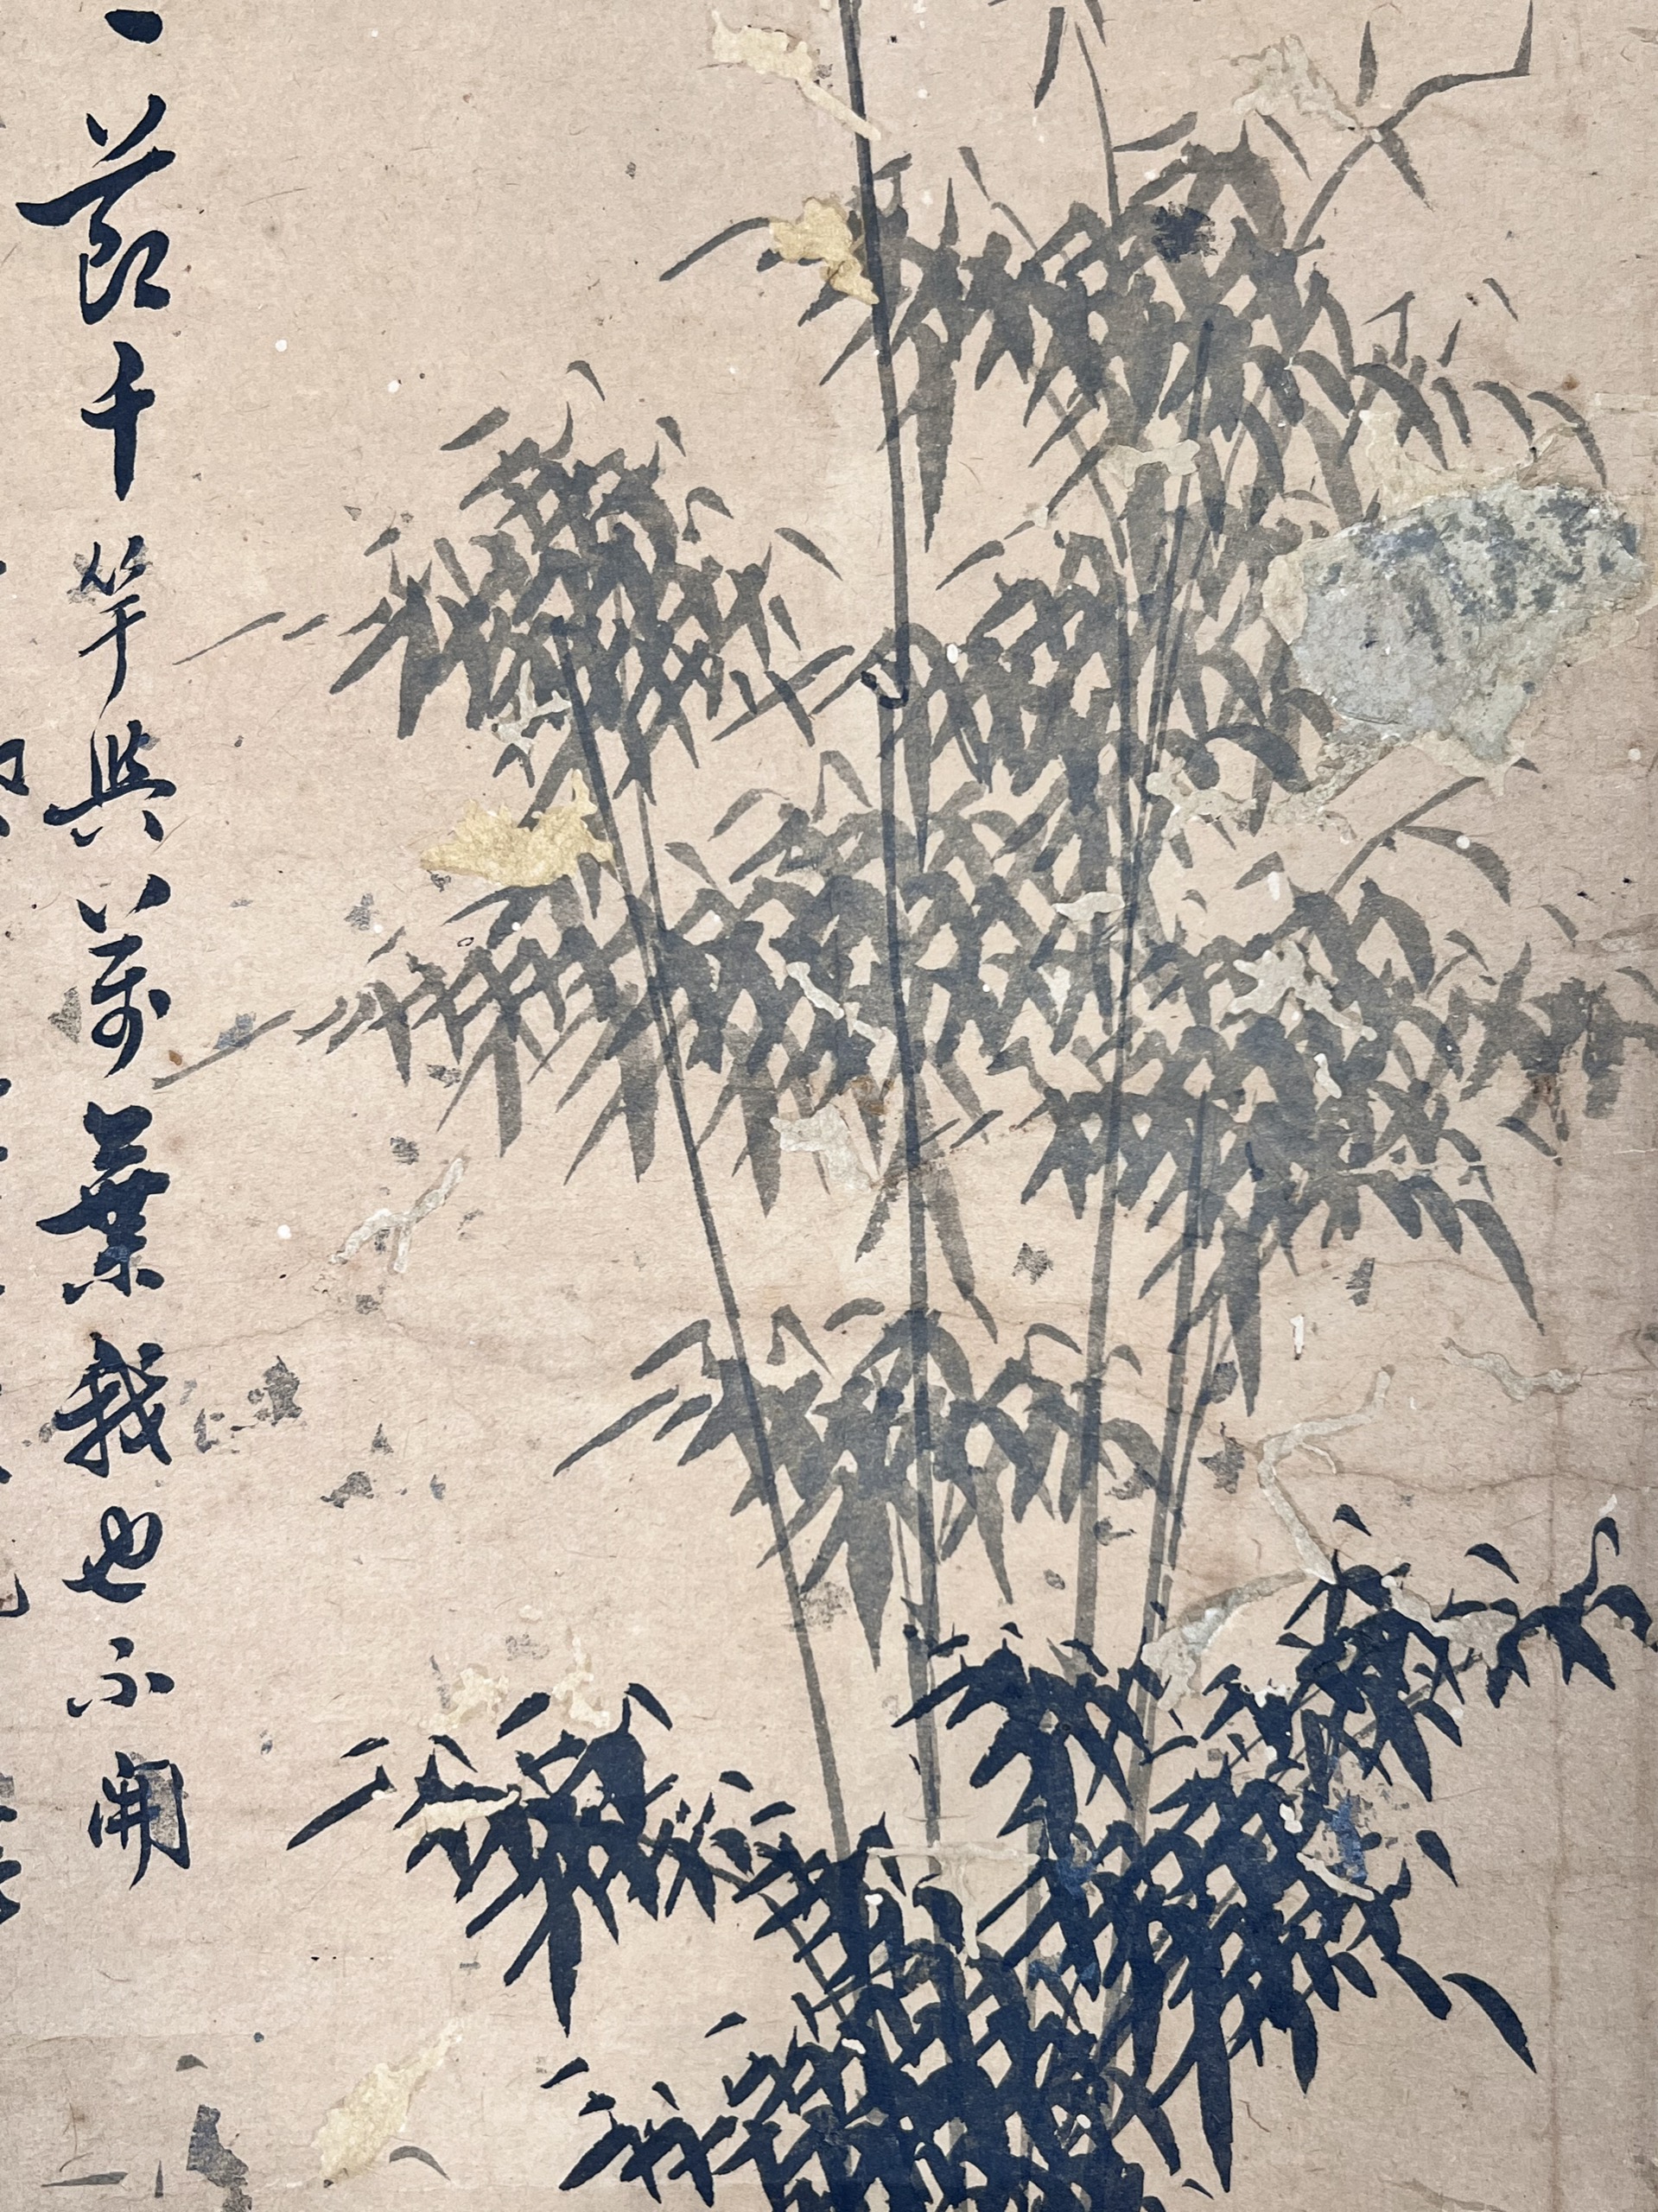 一節千竿與萬葉我也不開